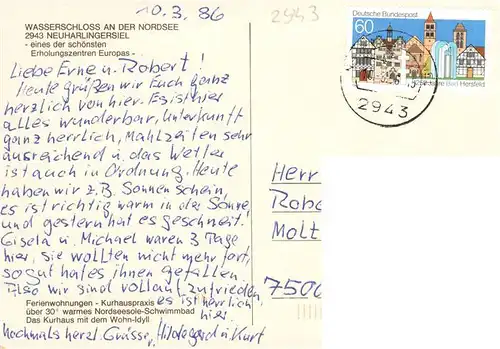 10.3.86
2943
WASSERSCHLOSS AN DER NORDSEE
2943 NEUHARLINGERSIEL
- eines der schönsten
Erholungszentren Europas -
Liebe Erne u. Robert!
Heute grüßen wir Euch ganz
herzlich von hier. Es ist hier
alles wunderbar, Unterkunft
ganz herrlich, Mahlzeiten sehr
ausreichend u. das Wetter
ist auch in Ordnung. Heute
haben wir z.B. Sonnenschein,
es ist richtig warm in der Sonne,
und gestern hat es geschneit!
Gisela u. Michael waren 3 Tage
hier, sie wollten nicht mehr fort,
so gut hat es ihnen gefallen.
Also wir sind vollauf zufrieden,
es ist herrlich
hier.
Ferienwohnungen - Kurhauspraxis
über 30° warmes Nordseesole-Schwimmbad
Das Kurhaus mit dem Wohn-Idyll
Nochmals herzl. Grüsse, Hildegard u. Kurt
Deutsche Bundespost
60
Bad Hersfeld
2943
Herr
Robe
Molt
7500